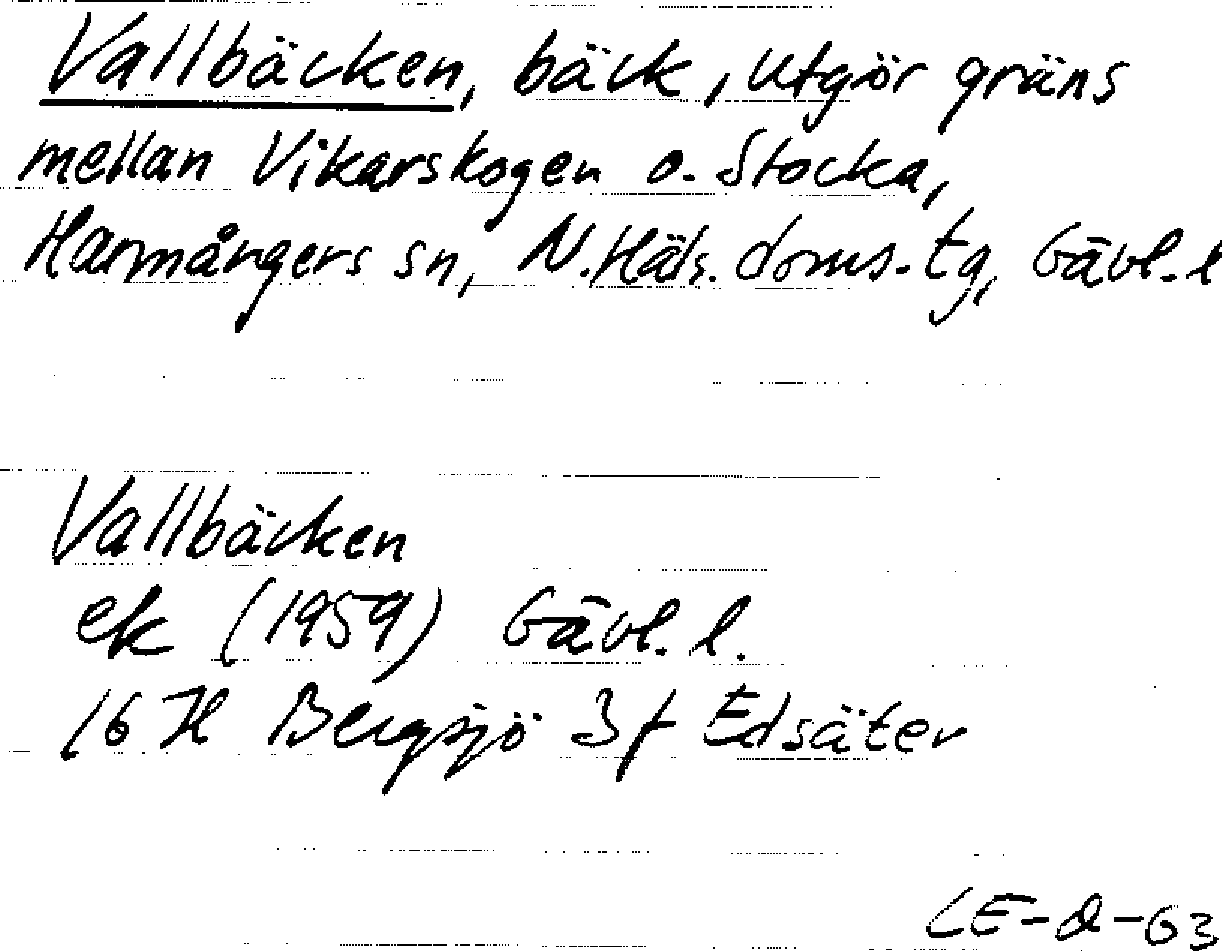 Vallbäcken, bäck, utgör gräns
mellan Vikarskogen o. Stocka,
Harmångers sn, N. Häls. doms. tg, Gävl. l
Vallbäcken
ek (1959) Gävl. l.
16 H Bergsjö 3f Edsäter
CE-2-63